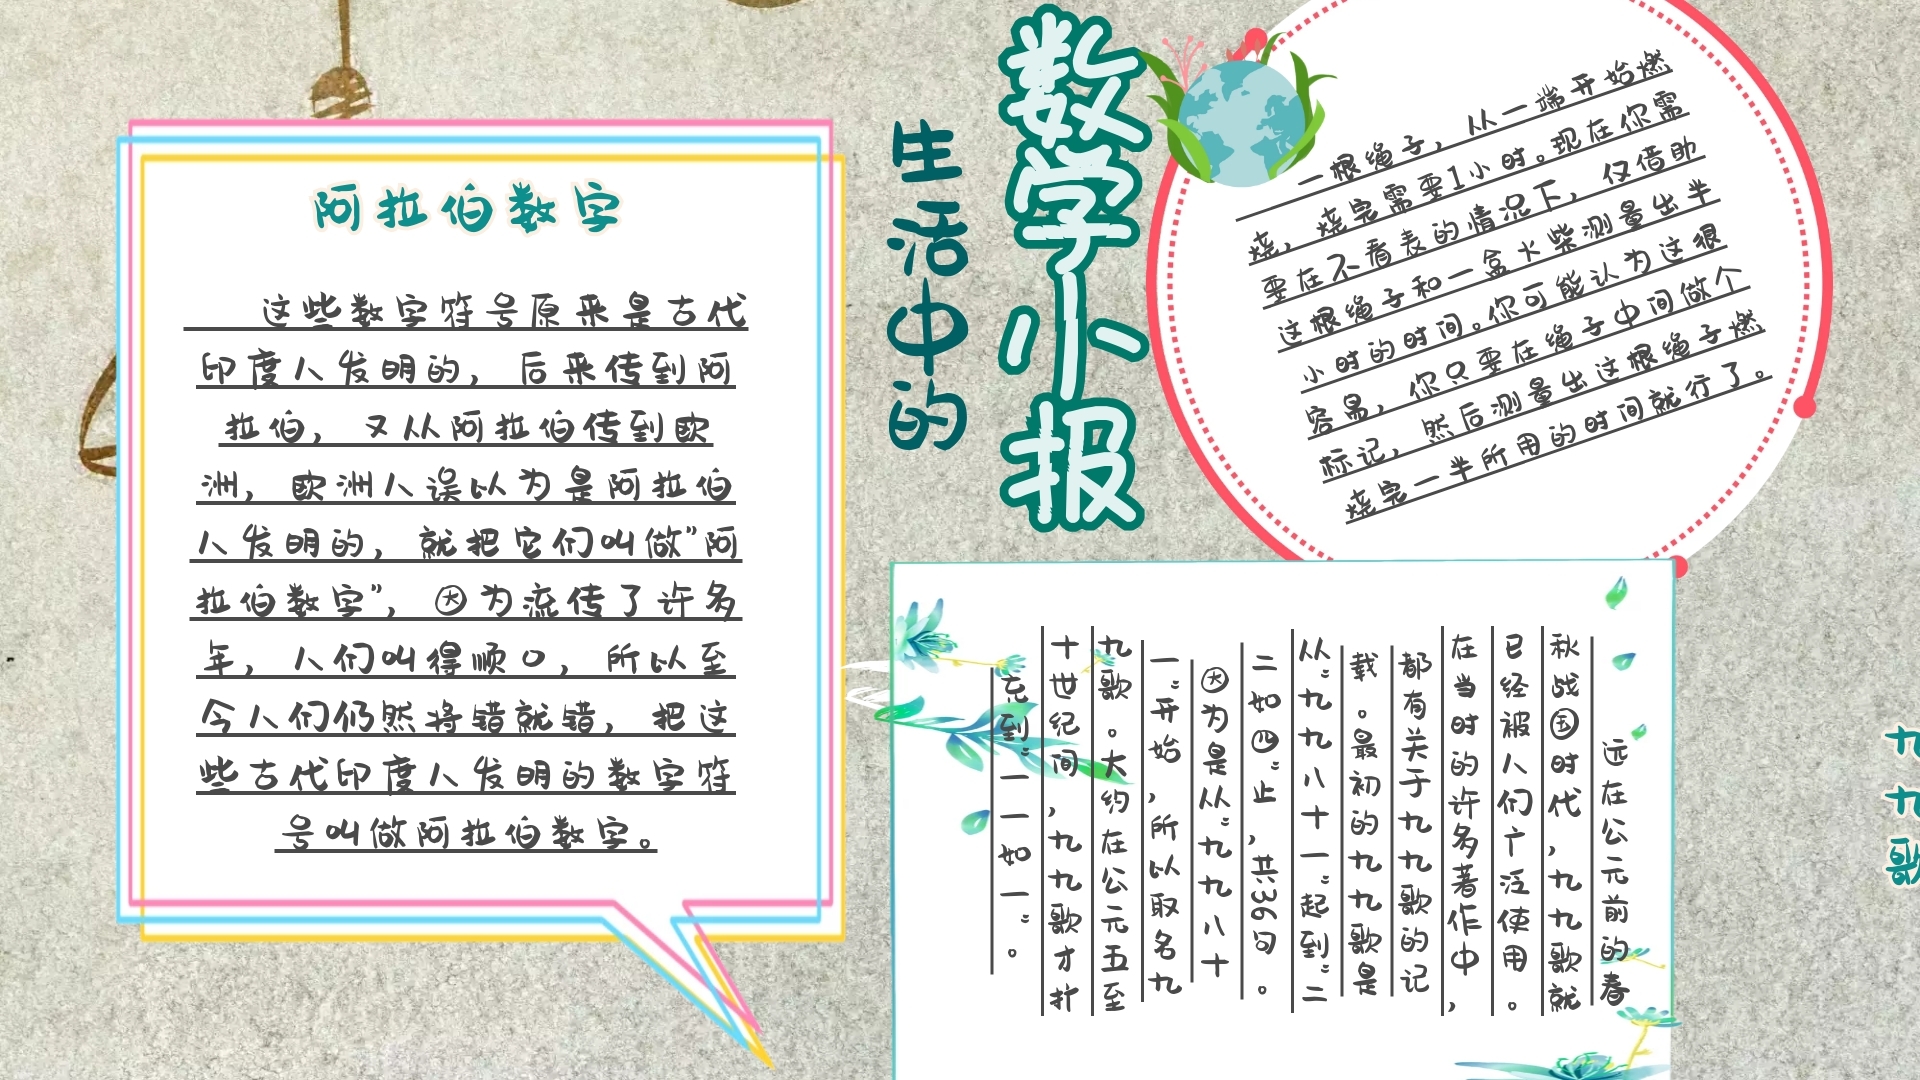 阿拉伯数字
这些数字符号原来是古代
印度人发明的，后来传到阿
拉伯，又从阿拉伯传到欧
洲，欧洲人误以为是阿拉伯
人发明的，就把它们叫做"阿
拉伯数字"，因为流传了许多
年，人们叫得顺口，所以至
今人们仍然将错就错，把这
些古代印度人发明的数字符
号叫做阿拉伯数字。
生活中的
数学小报
一根绳子，从一端开始燃
烧，烧完需要1小时。现在你需
要在不看表的情况下，仅借助
这根绳子和一盒火柴测量出半
小时的时间。你可能认为这很
容易，你只要在绳子中间做个
标记，然后测量出这根绳子燃
烧完一半所用的时间就行了。
远在公元前的春
秋战国时代，九九歌就
已经被人们广泛使用。
在当时的许多著作中，
都有关于九九歌的记
载。最初的九九歌是
从"九九八十一"起到"二
二如四"止，共36句。
因为是从"九九八十
一"开始，所以取名九
九歌。大约在公元五至
十世纪间，九九歌才扩
充到"一一如一"。
九九歌